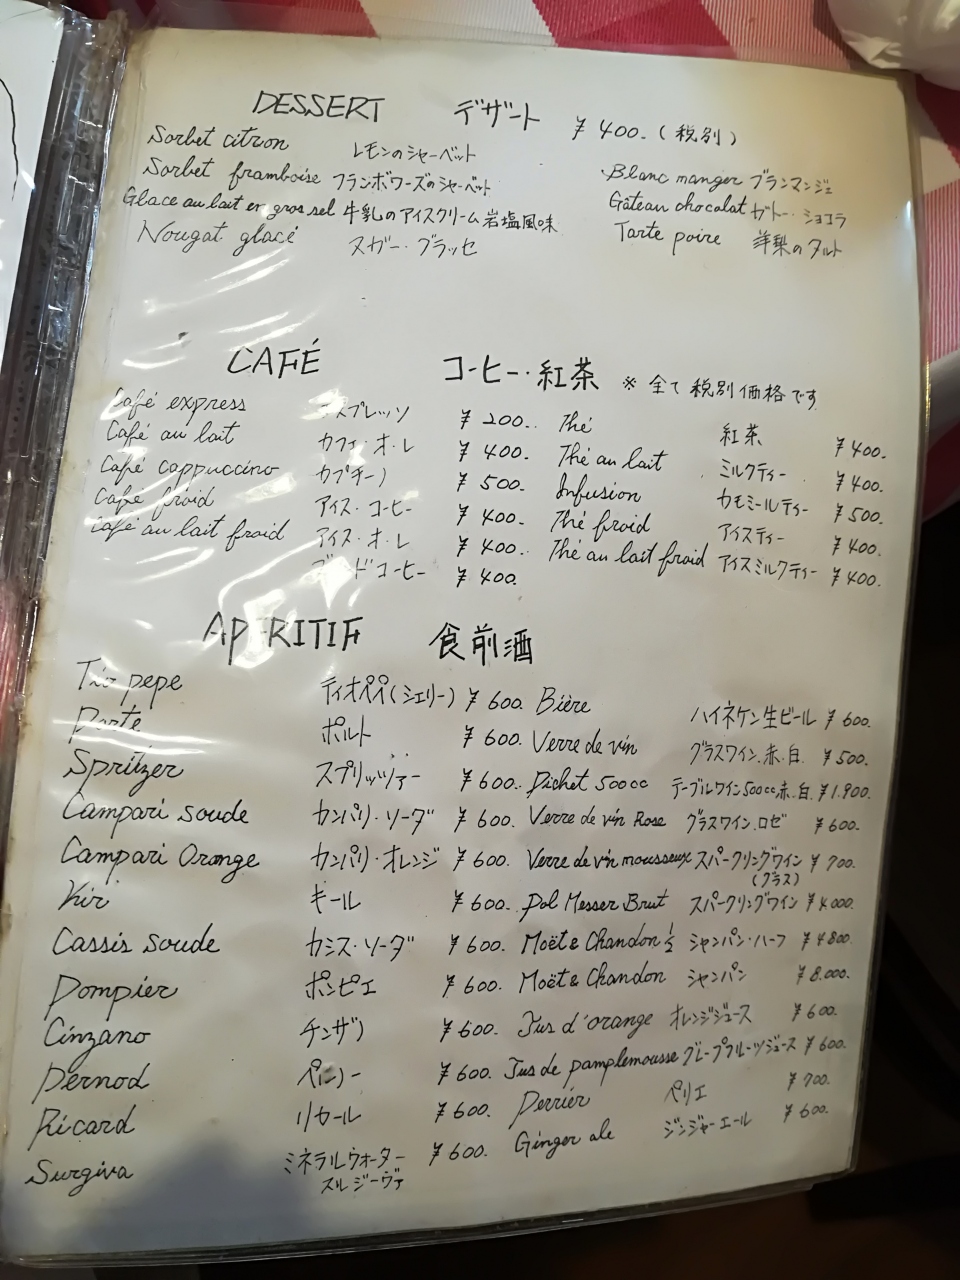 DESSERT デザート ¥400.(税別)
Sorbet citron レモンのシャーベット
Sorbet framboise フランボワーズのシャーベット
Glace au lait en gros sel 牛乳のアイスクリーム岩塩風味
Nougat glacé ヌガー・グラッセ
Blanc manger ブランマンジェ
Gâteau chocolat ガトー・ショコラ
Tarte poire 洋梨のタルト
CAFÉ コーヒー・紅茶 ※全て税別価格です
Café express エスプレッソ ¥200.
Café au lait カフェ・オ・レ ¥400.
Café cappuccino カプチーノ ¥500.
Café froid アイス・コーヒー ¥400.
Café au lait froid アイス・オ・レ ¥400.
コーヒー ¥400.
Thé 紅茶 ¥400.
Thé au lait ミルクティー ¥400.
Infusion カモミールティー ¥500.
Thé froid アイスティー ¥400.
Thé au lait froid アイスミルクティー ¥400.
APERITIF 食前酒
Tio pepe ティオペペ(シェリー) ¥600.
Porto ポルト ¥600.
Spritzer スプリッツァー ¥600.
Campari soude カンパリ・ソーダ ¥600.
Campari Orange カンパリ・オレンジ ¥600.
Kir キール ¥600.
Cassis soude カシス・ソーダ ¥600.
Pompier ポンピエ ¥600.
Cinzano チンザノ ¥600.
Pernod ペルノー ¥600.
Ricard リカール ¥600.
Surgiva ミネラルウォーター ¥600.
スルジーヴァ
Bière ハイネケン生ビール ¥600.
Verre de vin グラスワイン.赤.白. ¥500.
Pichet 500cc テーブルワイン500cc.赤.白. ¥1.900.
Verre de vin Rose グラスワイン.ロゼ ¥600.
Verre de vin mousseux スパークリングワイン ¥700.
(グラス)
Pol Messer Brut スパークリングワイン ¥4000.
Moët & Chandon ½ シャンパン・ハーフ ¥4800.
Moët & Chandon シャンパン ¥8.000.
Jus d'orange オレンジジュース ¥600.
Jus de pamplemousse グレープフルーツジュース ¥600.
Perrier ペリエ ¥700.
Ginger ale ジンジャーエール ¥600.